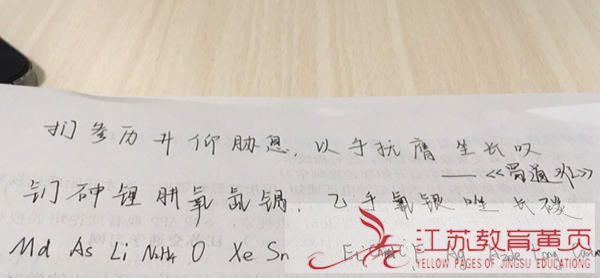 扪参历井仰胁息,以手抚膺坐长叹
——《蜀道难》
钔砷锂肼氧氙锡,乙手氧银唑长碳
Md As Li N₂H₄ O Xe Sn
江苏教育黄页
YELLOW PAGES OF JINGSU EDUCATIONG